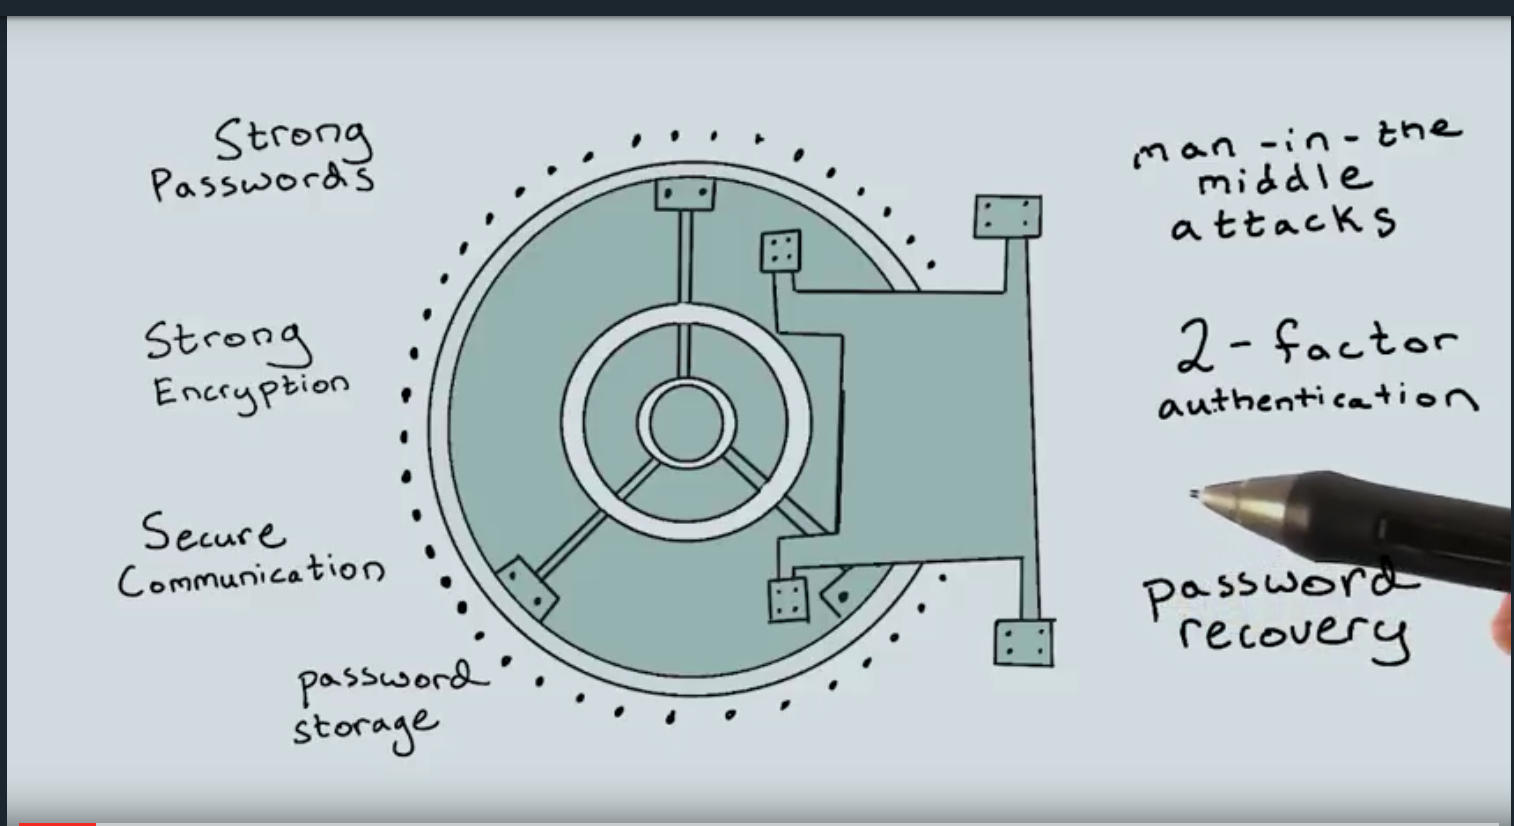 Strong
Passwords
Strong
Encryption
Secure
Communication
password
storage
man-in-the
middle
attacks
2-factor
authentication
password
recovery